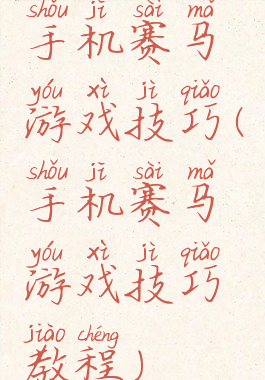 shǒu jī sài mǎ
手机赛马
yóu xì jì qiǎo
游戏技巧(
shǒu jī sài mǎ
手机赛马
yóu xì jì qiǎo
游戏技巧
jiào chéng
教程)